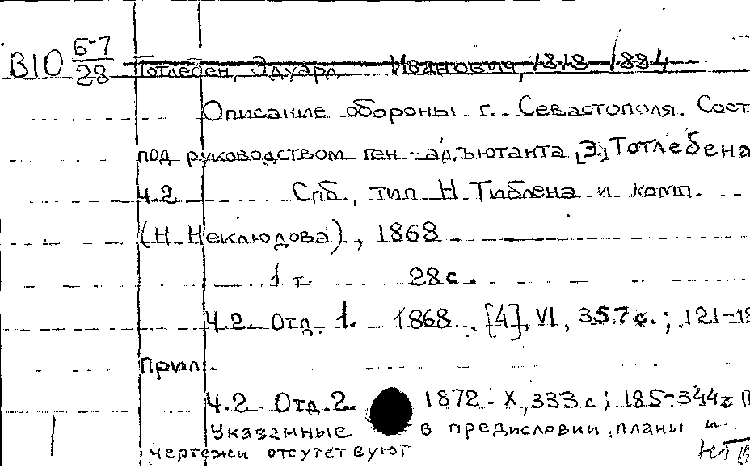 В10 6-7/28 Тотлебен, Эдуард Иванович, 1818-1884
Описание обороны г. Севастополя. Сост.
под руководством ген-адъютанта [Э.] Тотлебена
Ч.2 Спб., тип Н. Тиблена и комп.
(Н. Неклюдова), 1868
1 т 28 с.
Ч.2 Отд. 1. 1868. [4], VI, 357 с.; 121-18
Прил.
Ч.2 Отд.2. 1872.- X, 333 с; 185-344 с П
Указанные в предисловии планы и
чертежи отсутствуют